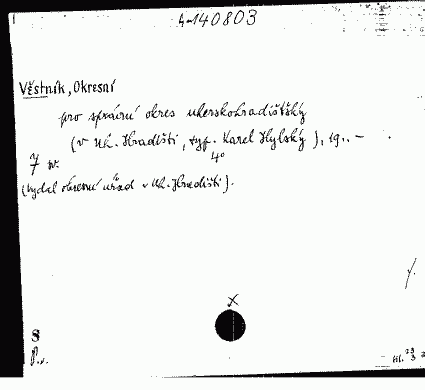 4-140803
Věstník, Okresní
pro správní okres uherskohradišťský
(v Uh. Hradišti, typ. Karel Hylský), 19.. — .
7 sv. 4°
(vydal okresní úřad v Uh. Hradišti).
x
8